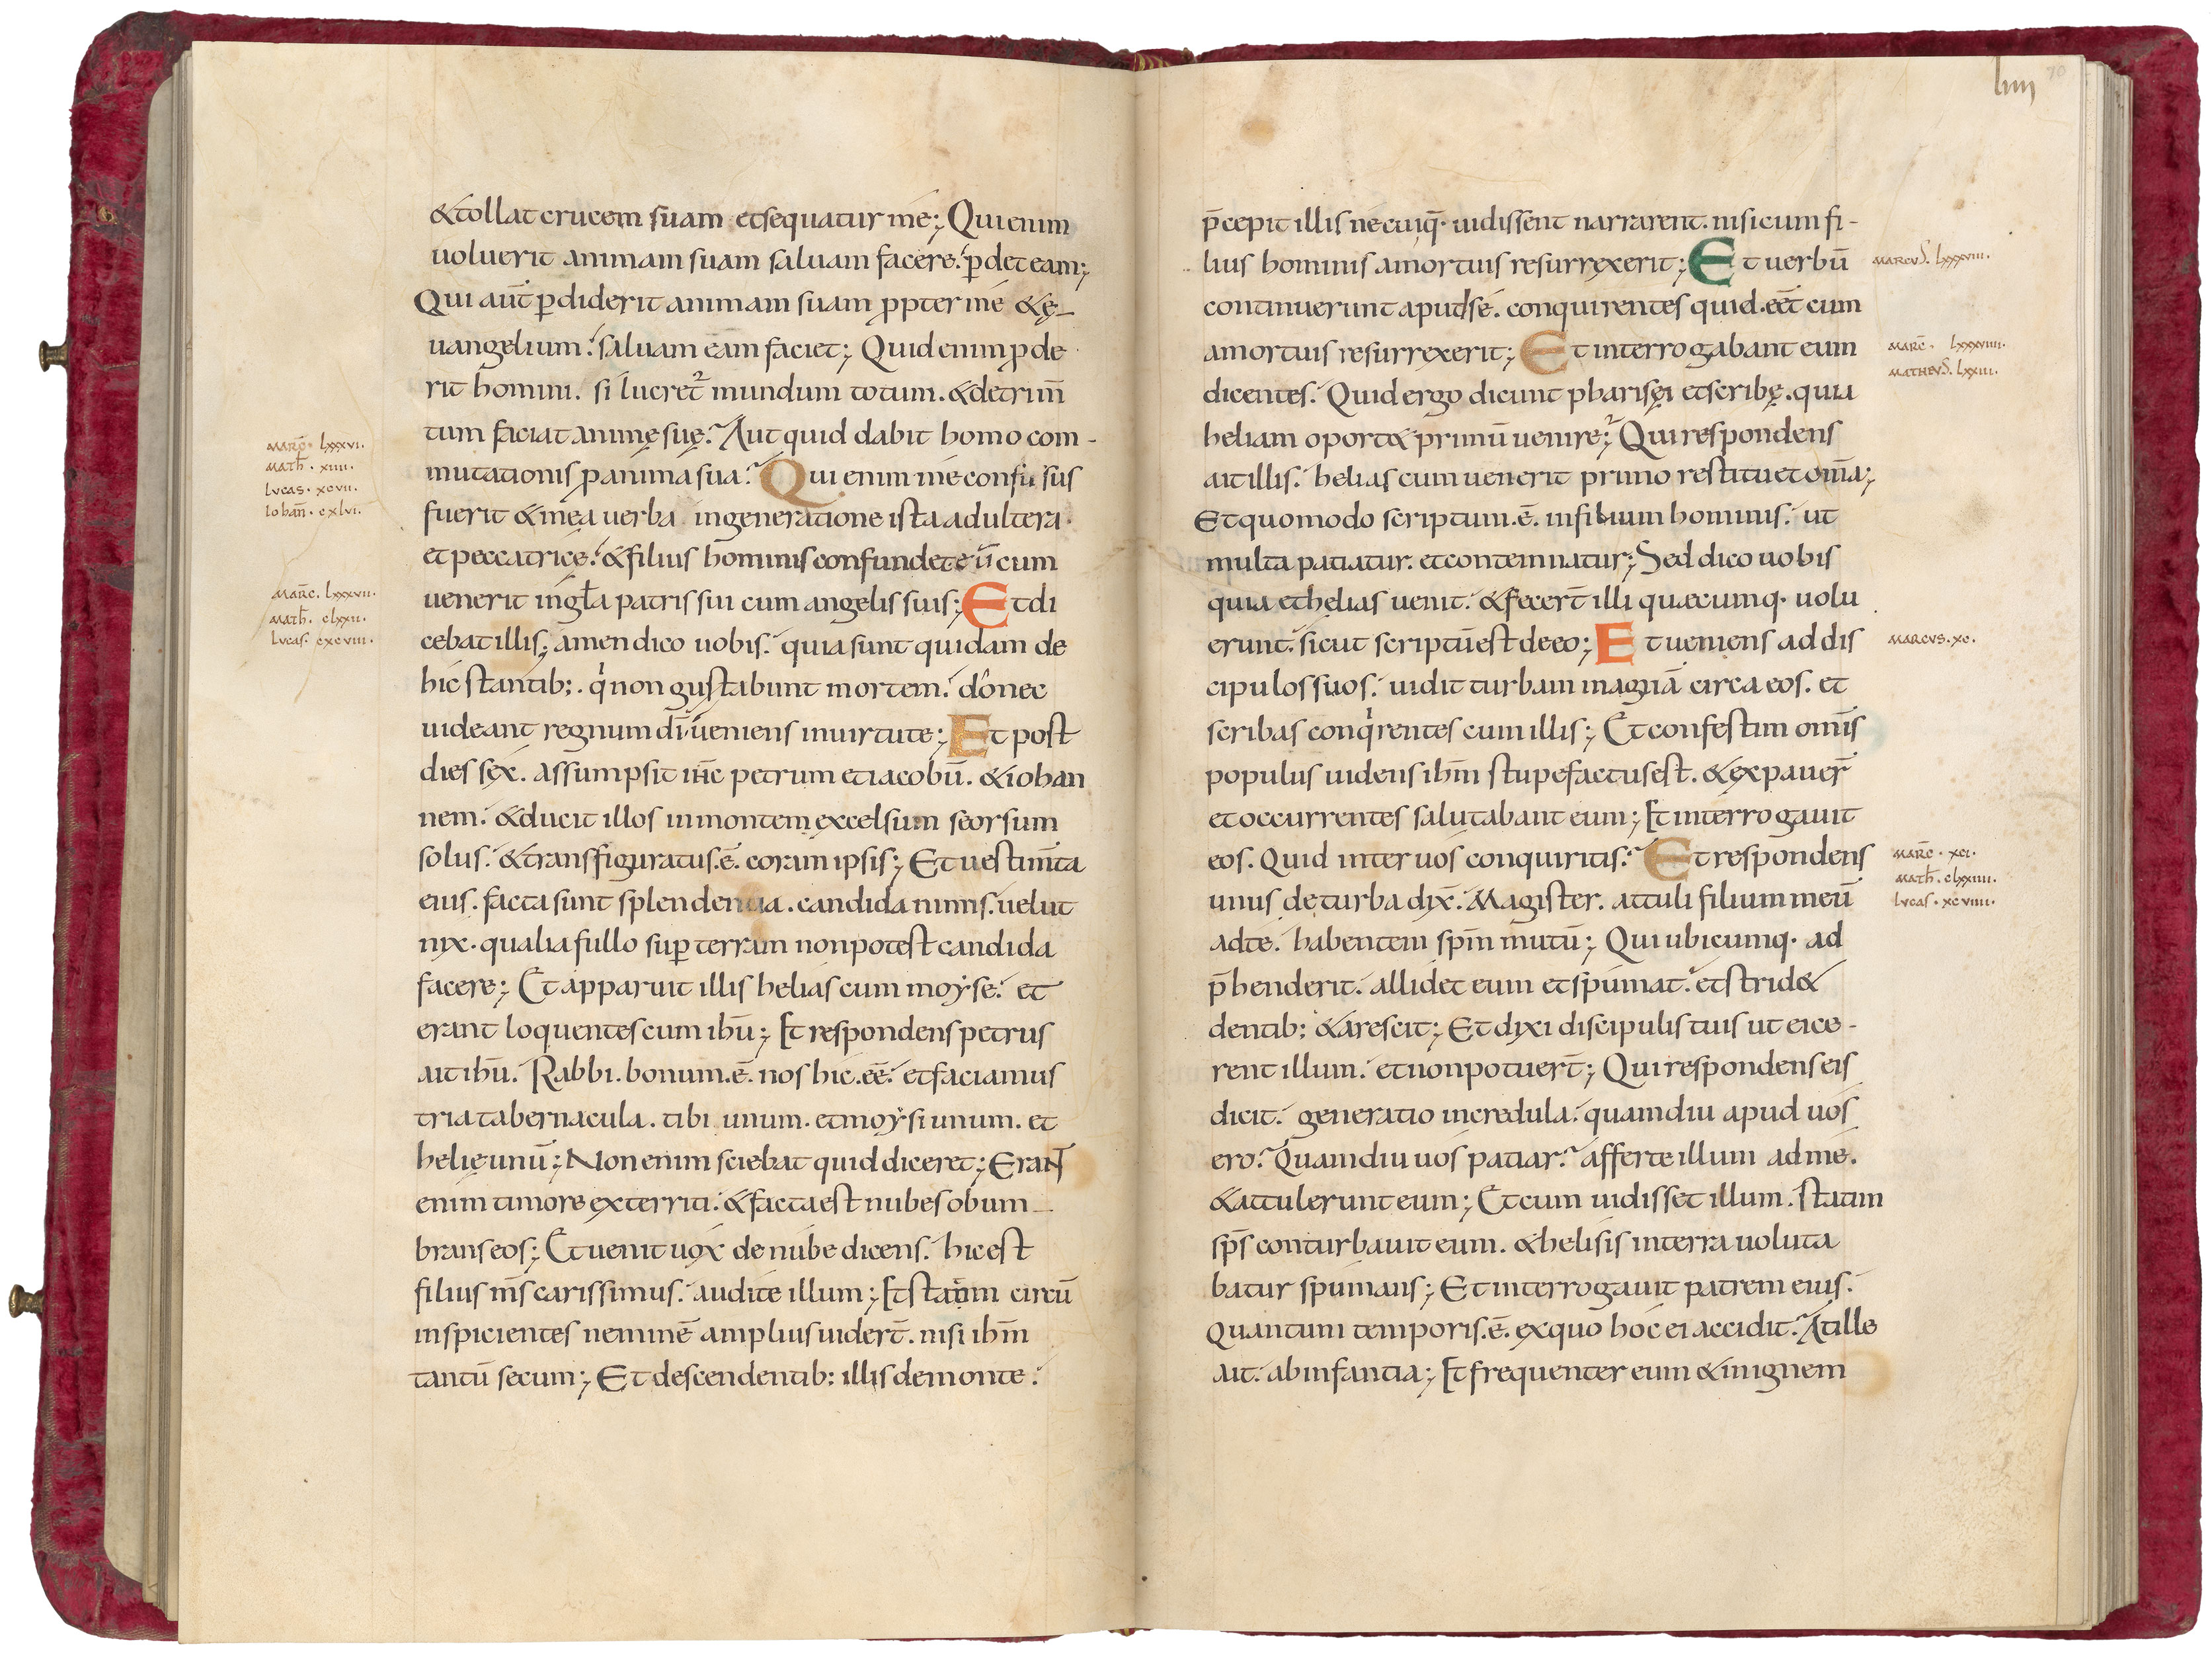 &tollat crucem suam etsequatur me; Qui enim
uoluerit animam suam saluam facere. p̄det eam;
Qui aut̄ p̄diderit animam suam ꝓpter me &ę-
uangelium. saluam eam faciet; Quid enim ꝓde
rit homini. si lucret᷑ mundum totum. &detrim̄
tum faciat animę suę? Aut quid dabit homo com-
mutationis ꝓ anima sua? Qui enim me confusus
fuerit & mea uerba in generatione ista adultera.
et peccatrice. & filius hominis confundet eū cum
uenerit in gl̄a patris sui cum angelis suis; Et di
cebat illis; amen dico uobis. quia sunt quidam de
hic stantib;. qi non gustabunt mortem. donec
uideant regnum dī ueniens in uirtute; Et post
dies sex. assumpsit ih̄c petrum et iacobū. & iohan
nem. & ducit illos in montem excelsum seorsum
solus. & transfiguratus.ē. coram ipsis; Et uestim̄ta
eius. facta sunt splendentia. candida nimis. uelut
nix. qualia fullo suꝑ terram non potest candida
facere; Et apparuit illis helias cum moẏse. et
erant loquentes cum ihū; Et respondens petrus
ait ihū. Rabbi. bonum.ē. nos hic.eē. et faciamus
tria tabernacula. tibi unum. et moẏsi unum. et
helię unū; Non enim sciebat quid diceret; Erant
enim timore exterriti. & facta est nubes obum-
brans eos; Et uenit uox de nube dicens. hic est
filius m̄s carissimus. audite illum; Et statim circū
inspicientes neminē amplius uider̄t. nisi ihm̄
tantū secum; Et descendentib; illis de monte.
marc̄. lxxxvi.
math̄. xiiii.
lucas. xcvii.
Iohan̄. cxlvi.
mar̄c. lxxxvii.
math̄. clxxii.
lucas. cxcviii.
liiii
70
p̄cepit illis ne cuiq̄. uidissent narrarent. nisi cum fi-
lius hominis amortuis resurrexerit; Et uerbū
continuerunt apud se. conquirentes quid.eēt cum
amortuis resurrexerit; Et interrogabant eum
dicentes. Quid ergo dicunt pharisęi et scribę. quia
heliam oport& primū uenire? Qui respondens
ait illis. helias cum uenerit primo restituet om̄a;
Et quomodo scriptum.ē. in filium hominis. ut
multa patiatur. et contemnatur; Sed dico uobis
quia et helias uenit. & fecer̄t illi quaecumq. uolu
erunt. sicut scriptū est de eo; Et ueniens ad dis
cipulos suos. uidit turbam magnā circa eos. et
scribas conqirentes cum illis; Et confestim om̄is
populus uidens ihm̄ stupefactus est. & expauer̄
et occurrentes salutabant eum; Et interrogauit
eos. Quid inter uos conquiritis? Et respondens
unus de turba dix̄. Magister. attuli filium meū
ad te. habentem spm̄ mutū; Qui ubicumq. ad
p̄henderit. allidet eum et spumat. et strid&
dentib; & arescit; Et dixi discipulis tuis ut eice-
rent illum. et non potuer̄t; Qui respondens eis
dicit. generatio incredula. quamdiu apud uos
ero? Quamdiu uos patiar? afferte illum ad me.
& attulerunt eum; Et cum uidisset illum. statim
sp̄s conturbauit eum. & helisis in terra uoluta
batur spumans; Et interrogauit patrem eius.
Quantum temporis.ē. ex quo hoc ei accidit? At ille
ait. ab infantia; Et frequenter eum & in ignem
marcus. lxxxviii.
marc̄. lxxxviiii.
matheus. lxxiii.
marcus. xc.
mar̄c. xci.
math̄. clxxiiii.
lucas. xcviiii.